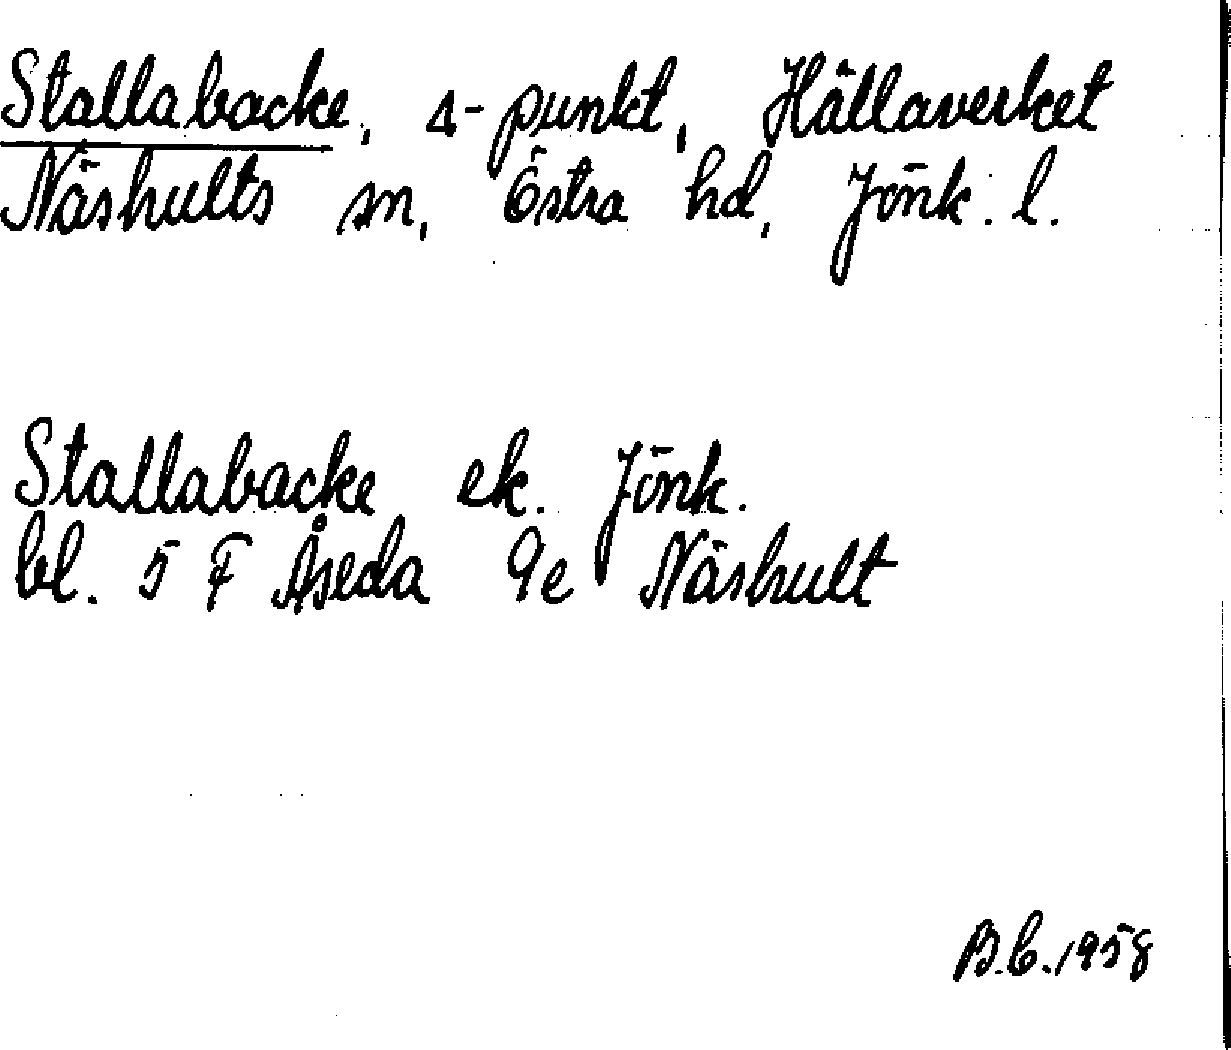 Stallabacke, Δ-punkt, Hällaverket
Näshults sn, Östra hd, Jönk. l.
Stallabacke ek. Jönk.
bl. 5 F Åseda 9e Näshult
B.C. 1958